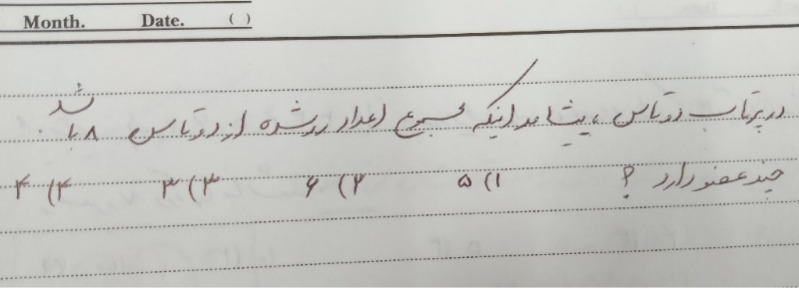 Month. Date. ( )
در پرتاب دو تاس ، پیشامد اینکه مجموع اعداد رو شده از دو تاس ۸ باشد
چند عضو دارد ؟ ۱) ۵ ۲) ۶ ۳) ۳ ۴) ۴